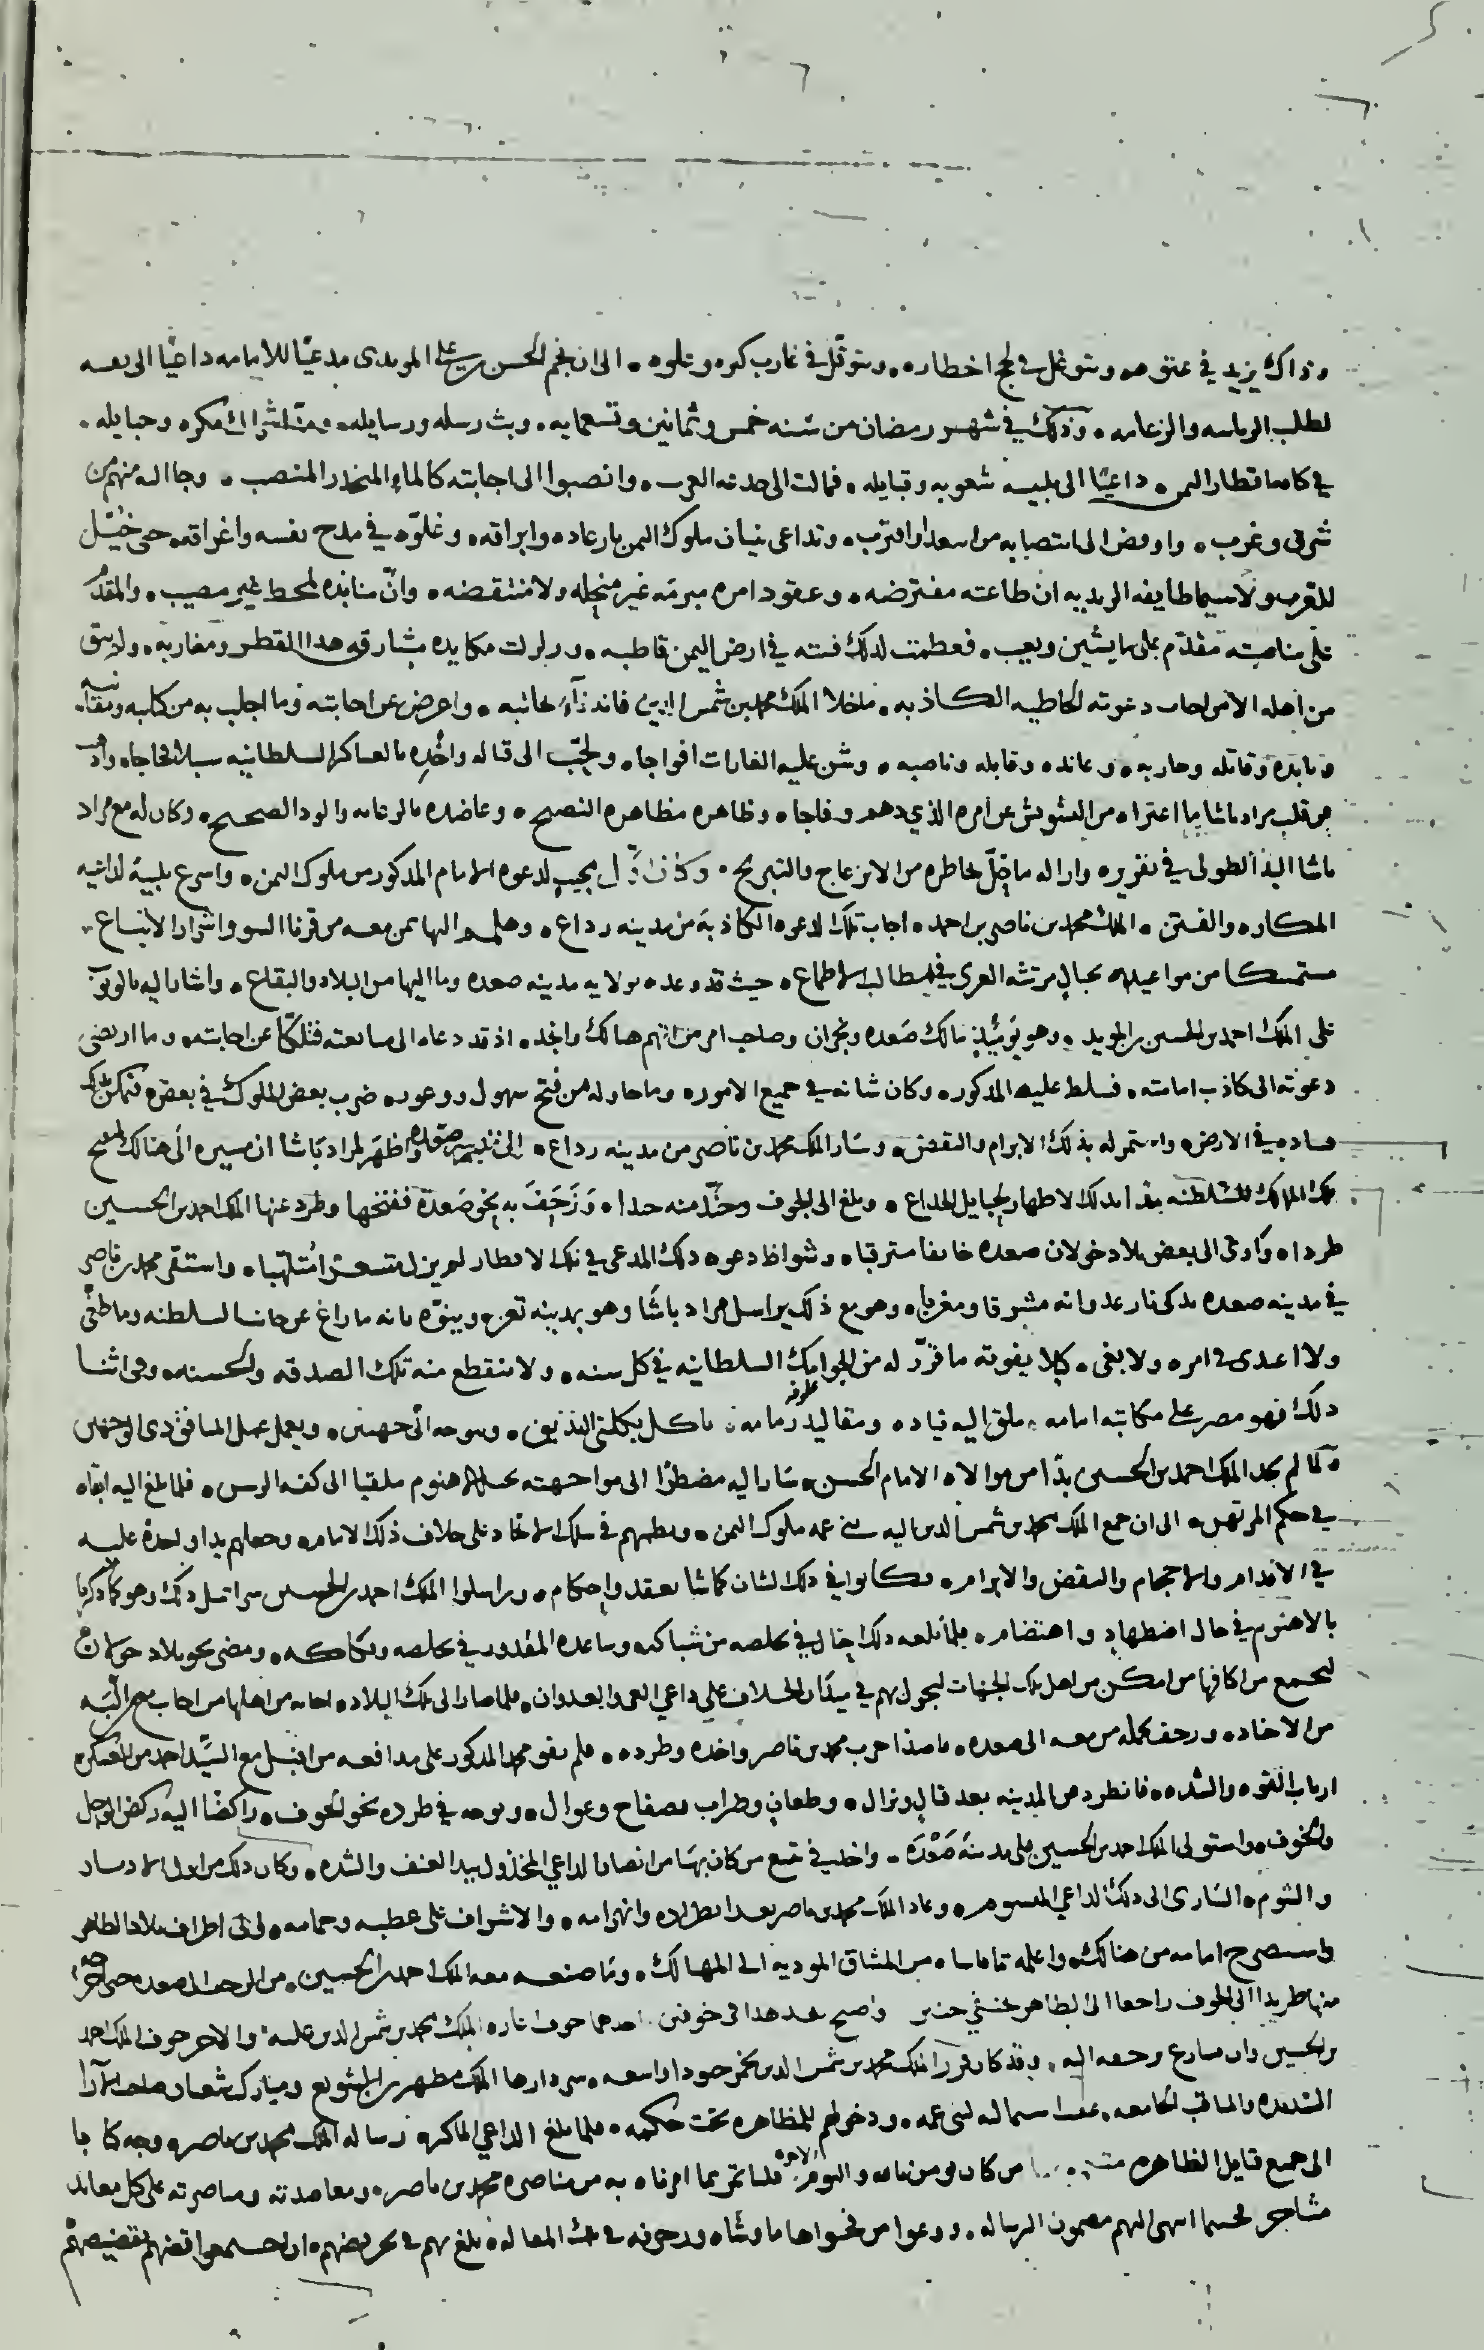 وذاك يزيد في عتوه ويتوغل في لجج اخطاره ويتوقل في غارب كبره وعلوه الى ان نجم الحسن بن علي المويدى مدعيًا للامامه داعيًا الى نفسه
لطلب الرياسه والزعامه وذلك في شهر رمضان من سنه خمس وثمانين وتسعمايه وبث رسله ورسايله اشراك مكره وحبايله
في كافه اقطار اليمن داعيًا الى تلبيه شعوبه وقبايله فمالت الى خدعه العرب وانصبوا الى اجابته كالماء المنحدر المنصب وجا اليه منهم من
شرق وغرب واوفض الى انتصابه من ابتعد او اقترب وتداعى بنيان ملوك اليمن بارعاده وابراقه وغلوه في مدح نفسه واغراقه حتى خُيّل
للعرب ولا سيما طايفه الزيديه ان طاعته مفترضه وعقود امره مبرمه غير منحله ولا منتقضه وانّ منابذه لمخط غير مصيب والمقدم
على مناصبته مقدّم على ما يشين ويعيب فعظمت لذلك فتنه في ارض اليمن قاطبه وزلزلت مكايده مشارق هذا القطر ومغاربه ولم يبق
من اهله الا من اجاب دعوته الخاطيه الكاذبه ما خلا الملك محمد بن شمس الدين فانه نآء بجانبه واعرض عن اجابته وما اجلب به من كتايبه ومقانبه
ونابذه وقاتله وحاربه وعانده وقابله وناصبه وشن عليه الغارات افواجا ولحّب الى قتاله واخذه بالعساكر السلطانيه سبلا فجاجا واذهب
عن قلب مراد باشا ما اعتراه من التشويش عن امره الذي دهم وفاجا وظاهره مظاهره النصيح وعاضده بالرعايه والود الصحيح وكان له مع مراد
باشا اليد الطولى في تقريره وازاله ما حلّ بخاطره من الانزعاج والتبريح وكان اوّل مجيب لدعوه الامام المذكور من ملوك اليمن واسرع تلبية لداعيه
المكاره والفتن الملك محمد بن ناصر بن احمد اجاب تلك الدعوه الكاذبه من مدينه رداع وهلم اليها بمن معه من قرنا السو واشرار الاتباع
متمسكا من مواعيده بحبال مرتثه العرى في مطالب الاطماع حيث قد وعده بولايه مدينه صعده وما اليها من البلاد والبقاع واشار اليه بالوثوب
على الملك احمد بن الحسين بن المويد وهو يومئيذٍ مالك صعده ونجران وصاحب امر من اتهم هنالك وانجد اذ قد دعاه الى مبايعته فتلكّأ عن اجابته وما ارتضى
دعوته الى كاذب امامته فسلط عليه المذكور وكان شانه في جميع الامور وما حاوله من فتح سهول ووعور ضرب بعض الملوك في بعض فتمكن بذلك
فساده في الارض واستمر له بذلك الابرام والنقض وسار الملك محمد بن ناصر من مدينه رداع الى واظهر لمراد باشا ان مسيره الى هنالك لفتح
تلك الممالك للسلطنه بذلك الاظهار بحبايل الخداع وبلغ الى الجوف وجنّد منه جندا وزحف به نحو صعدة ففتحها وطرد عنها الملك احمد بن الحسين
طردا وآوى الى بعض بلاد خولان صعده خايفا مترقبا وشواظ دعوه ذلك المدعى في تلك الاقطار لم يزل متسعرا ملتهبا واستقر محمد بن ناصر
في مدينه صعده يذكى نار عدوانه مشرقا ومغربا وهو مع ذلك يراسل مراد باشا وهو بمدينه تعز وينوّه بانه ما زاغ عن جانب السلطنه وما طغى
ولا اعتدى في امره ولا بغى كيلا يفوته ما قرّر له من الجوامك السلطانيه في كل سنه ولا تنقطع منه تلك الصدقه والحسنه وفى اثنا
ذلك فهو مصر على مكاتبه امامه ملق اليه قياده ومقاليد زمامه ياكل بكلتى اليدين ويتوجه الى جهتين ويعمل عمل المنافق ذى الوجهين
ولما لم يجد الملك احمد بن الحسين بدّا من موالاه الامام الحسن سار اليه مضطرّا الى مواجهته بجبال الاهنوم ملقيا الى كفه الرسن فلما بلغ اليه ابقاه
في حكم المرتهن الى ان جمع الملك محمد بن شمس الدين اليه بني عمه ملوك اليمن ونظمهم في سلك الاتحاد على خلاف ذلك الامام وجعلهم يدا واحدة عليه
في الاقدام والاحجام والنقض والابرام فكانوا في ذلك الشان كما شا بعقد واحكام وراسلوا الملك احمد بن الحسين من اجل ذلك وهو كما ذكرنا
بالاهنوم في حال اضطهادٍ واهتضام فلما بلغه ذلك احتال في تخلصه من شباكه وساعده المقدور في تخلصه وفكاكه ومضى نحو بلاد خولان
ليجمع من اكنافها من امكن من اهل تلك الجهات ليجول بهم في ميدان الخلاف على داعي البغى والعدوان فلما صار الى تلك البلاد اجابه من اهلها من اجاب
من الاجناد وزحف بجمله من معه الى صعده قاصدا حرب محمد بن ناصر واخذه وطرده فلم يقو محمد المذكور على مدافعه من اقبل مع السيّد احمد من العسكر
ارباب القوه والشده فانطرد من المدينه بعد قتالٍ ونزال وطعانٍ وضراب بصفاح وعوال وتوجه في طرده نحو الجوف راكضا اليه ركض الوجل
والخوف واستولى الملك احمد بن الحسين على مدينة صَعْدَه واخذ في تتبع من كان بها من انصار الداعي المخذول بيد العنف والشده وكان ذلك من اول الفساد
والشوم السارى الى ذلك الداعي وعاد الملك محمد بن ناصر بعد انطراده وانهزامه والاشراف على عطبه وحمامه الى اطراف بلاد الظاهر
واستصرخ امامه من هنالك واعلمه بما قاسا من المشاق الموديه الى المهالك وما صنعه معه الملك احمد بن الحسين من الزحف الى صعده حتى اخرجه
منها طريدا الى الجوف راجعا الى الظاهر بخفي حنين واصبح بعد هذا في خوفين احدهما خوف غاره الملك محمد بن شمس الدين عليه والاخر خوف الملك احمد
بن الحسين وان يسارع رجعه اليه وقد كان قرر الملك محمد بن شمس الدين بخمر جنودا واسعه سردارها الملك مطهر بن الشويع ومبارك شعار صاحب الآرا
السديده والمناقب الجامعه بعد استماله لبنى عمه ودخولهم للمظاهره تحت حكمه فلما بلغ الداعي الماكر رساله الملك محمد بن ناصر وجه كتابا
الى جميع قبايل الظاهر من كان يومن بالله واليوم الاخر فليأتمر بما امرناه به من مناصره محمد بن ناصر ومعاضدته ومناصرته على كل معاند
مشاجر فحينما انتهى اليهم مضمون الرساله ووعوا من فحواها ما وشاه وزخرفه في تلك المقاله بلغ بهم في تحريضهم ان اجتمعوا بقضهم وقضيضهم